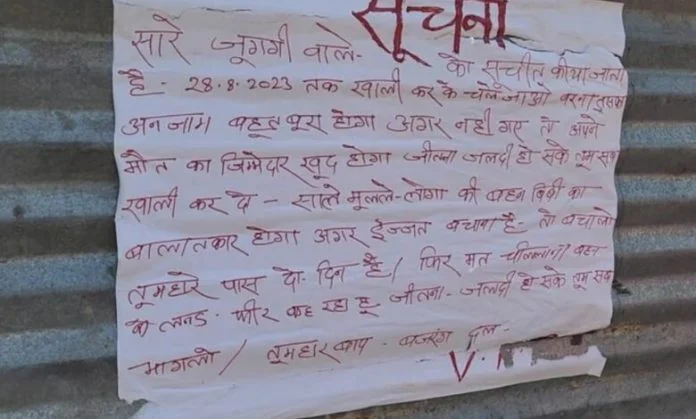 सूचना
सारे जूग्गी वाले- को सूचीत कीया जाता
है - 28.8.2023 तक खाली कर के चले जाओ वरना इसका
अनजाम बहूत बूरा होगा अगर नही गए तो अपने
मौत का जिम्मेदार खूद होगा जीतना जलदी हो सके तूम सब
खाली कर दे - साले मूलले-लोगो की बहन बिवी का
बालातकार होगा अगर ईज्जत बचाना है - तो बचालो
तूमहारे पास दो-दिन है / फिर मत चीललाना बहन
के लनड - फीर कह रहा हू जीतना - जलदी हो सके तूम सब
भागलो / तूमहार बाप - बजरंग दल -
V.